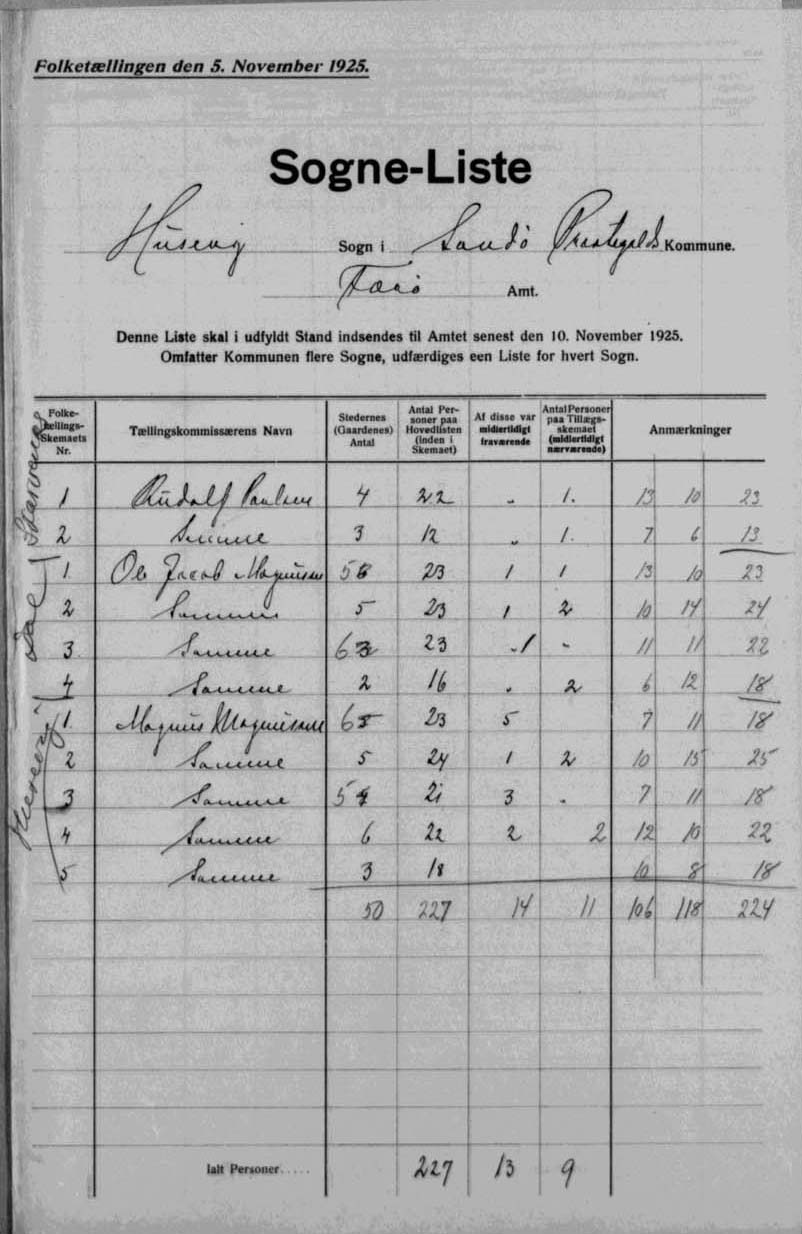 Folketællingen den 5. November 1925.
Sogne-Liste
Husevig Sogn i Sandø Præstegælds Kommune.
Færø Amt.
Denne Liste skal i udfyldt Stand indsendes til Amtet senest den 10. November 1925.
Omfatter Kommunen flere Sogne, udfærdiges een Liste for hvert Sogn.
Folketællings-Skemaets Nr. Tællingskommissærens Navn Stedernes (Gaardenes) Antal Antal Personer paa Hovedlisten (inden i Skemaet) Af disse var midlertidigt fraværende Antal Personer paa Tillægsskemaet (midlertidigt nærværende) Anmærkninger
1 Rudolf Paulsen 4 22 „ 1. 13 10 23
2 Samme 3 12 „ 1. 7 6 13
Dal
1 Ole Jacob Magnussen 5 23 1 1 13 10 23
2 Samme 5 23 1 2 10 14 24
3 Samme 6 23 1 - 11 11 22
4 Samme 2 16 . 2 6 12 18
Husevig
1 Magnus Magnussen 6 23 5 7 11 18
2 Samme 5 24 1 2 10 15 25
3 Samme 5 21 3 . 7 11 18
4 Samme 6 22 2 2 12 10 22
5 Samme 3 18 10 8 18
50 227 14 11 106 118 224
Ialt Personer..... 227 13 9